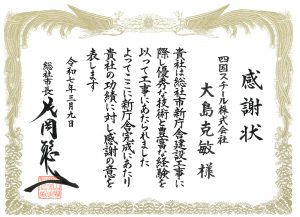 感謝状
四国スチール株式会社
大島克敏 様
貴社は総社市新庁舎建設工事に
際し優秀な技術と豊富な経験を
以って工事にあたられました
よってここに新庁舎完成にあたり
貴社の功績に対し感謝の意を
表します
令和七年三月九日
総社市長 片岡聡一